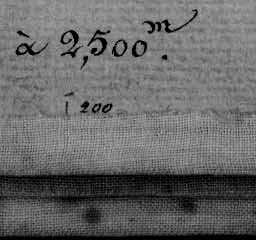 à 2,500^m.
1 200